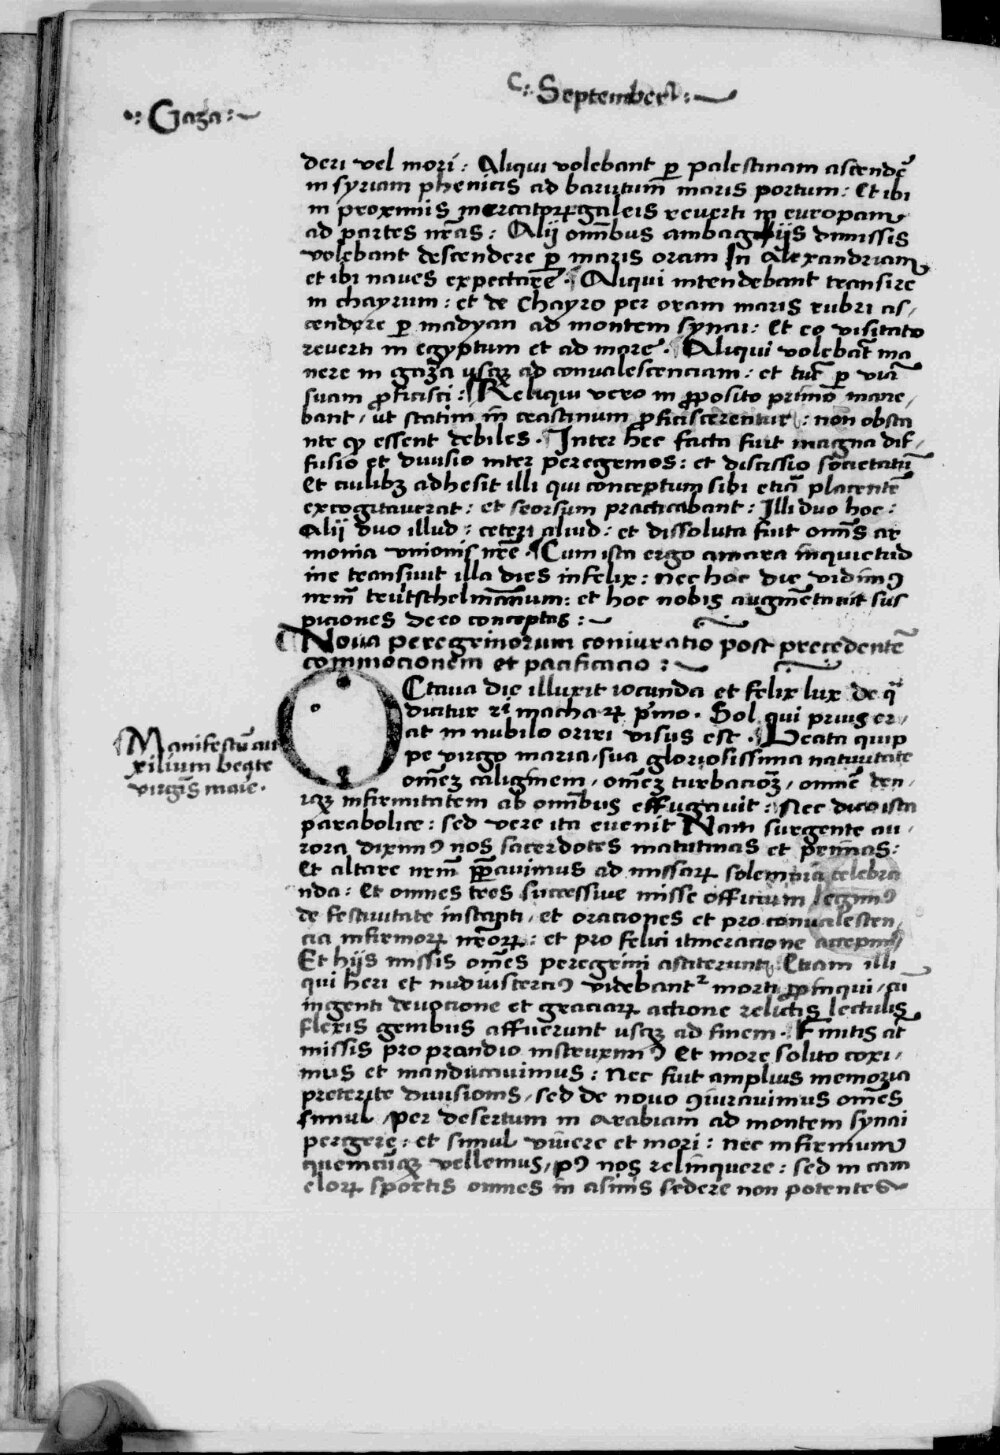 C: September :~
·: Gaza :~
deri vel mori : Aliqui volebant ꝑ palestinam ascendē
in syriam phenicis ad baruttum maris portum : Et ibi
in proximis mercatorꝝ galeis reverti in europam
ad partes nr̄as : Alij om̄ibus ambagiis dimissis
volebant descendere ꝑ maris oram In Alexandriam
et ibi naves expectare · Aliqui intendebant transire
in chayrum : et de Chayro per oram maris rubri as,
cendere ꝑ madyan ad montem synai : Et eo visitato
reverti in egyptum et ad mare · Aliqui volebāt ma
nere in gaza usqꝫ ad convalescenciam : et tūc ꝑ viā
suam ꝓficisci : Reliqui vero in ꝓposito primo mane,
bant, ut statim in crastinum ꝓficiscerentur : non obsta
nte qꝫ essent debiles · Inter hec facta fuit magna dif,
fusio et divisio inter peregrinos : et discissio societatū
Et cuilibꝫ adhesit illi qui conceptum sibi etiā placentē
excogitaverat : et seorsum practicabant : Illi duo hoc :
Alii duo illud : ceteri aliud : et dissoluta fuit om̄is ar
monia unionis nr̄e · Cum ista ergo amara inquietud
ine transivit illa dies infelix : nec hoc die vidimꝰ
nr̄m trütschelmannum : et hoc nobis augmētavit sus
piciones de eo conceptas :~
Nova peregrinorum coniuratio post precedentē
commocionem et pacificacio :~
OCtava die illuxit iocunda et felix lux de qͣ
dicitur 2ͥ machaꝝ pͥmo · Sol qui prius er,
at in nubilo oriri visus est · Beata quip
pe virgo maria, sua gloriosissima nativitate
om̄eꝫ caliginem, om̄eꝫ turbacioꝫ, omnē den,
iqꝫ infirmitatem ab omībus effugavit : Nec dico ista
parabolice : sed vere ita evenit Nam surgente au,
rora diximꝰ nos sacerdotes matutinas et primas :
Et altare nr̄m ꝑpavimus ad missarꝝ solempnia celebra
nda : Et omnes tres successive misse officium legimꝰ
de festivitate instanti, et oraciones et pro convalescen,
cia infirmorꝝ nr̄orꝝ : et pro felici itineracione accepimꝰ
Et hijs missis om̄es peregrini astiterunt : Etiam illi
qui heri et nudiusterciꝰ videbantᷣ morti ꝓpinqui, cū
ingenti devocione et graciarꝝ actione relictis lectulis
flexis genibus affuerunt usqꝫ ad finem · Finitis āt
missis pro prandio instruximꝰ Et more solito coxi,
mus et manducavimus : Nec fuit amplius memoria
preterite divisionis, sed de novo ꝯiuravimus om̄es
simul, per desertum in arabiam ad montem synai
pergere : et simul vivere et mori : nec infirmum
quemcūqꝫ vellemus, pꝰ nos relinquere : sed in cam
elorꝝ sportis omnes in asinis sedere non potentes
Manifestū au
xilium beate
virgīs maie ·